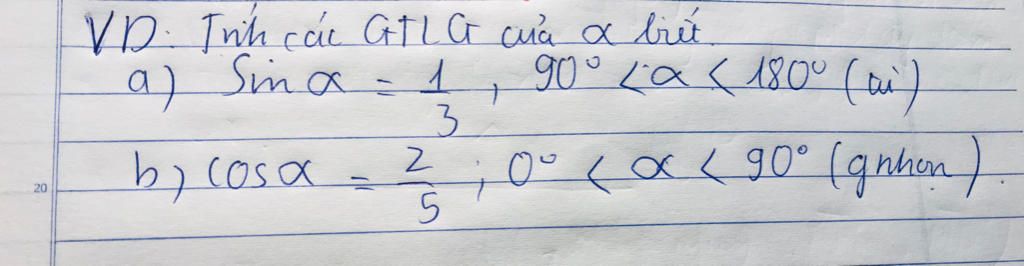 VD: Tính các GTLG của α biết.
a) Sin α = 1/3 , 90° < α < 180° (tù)
b) cos α = 2/5 ; 0° < α < 90° (g nhọn).
20